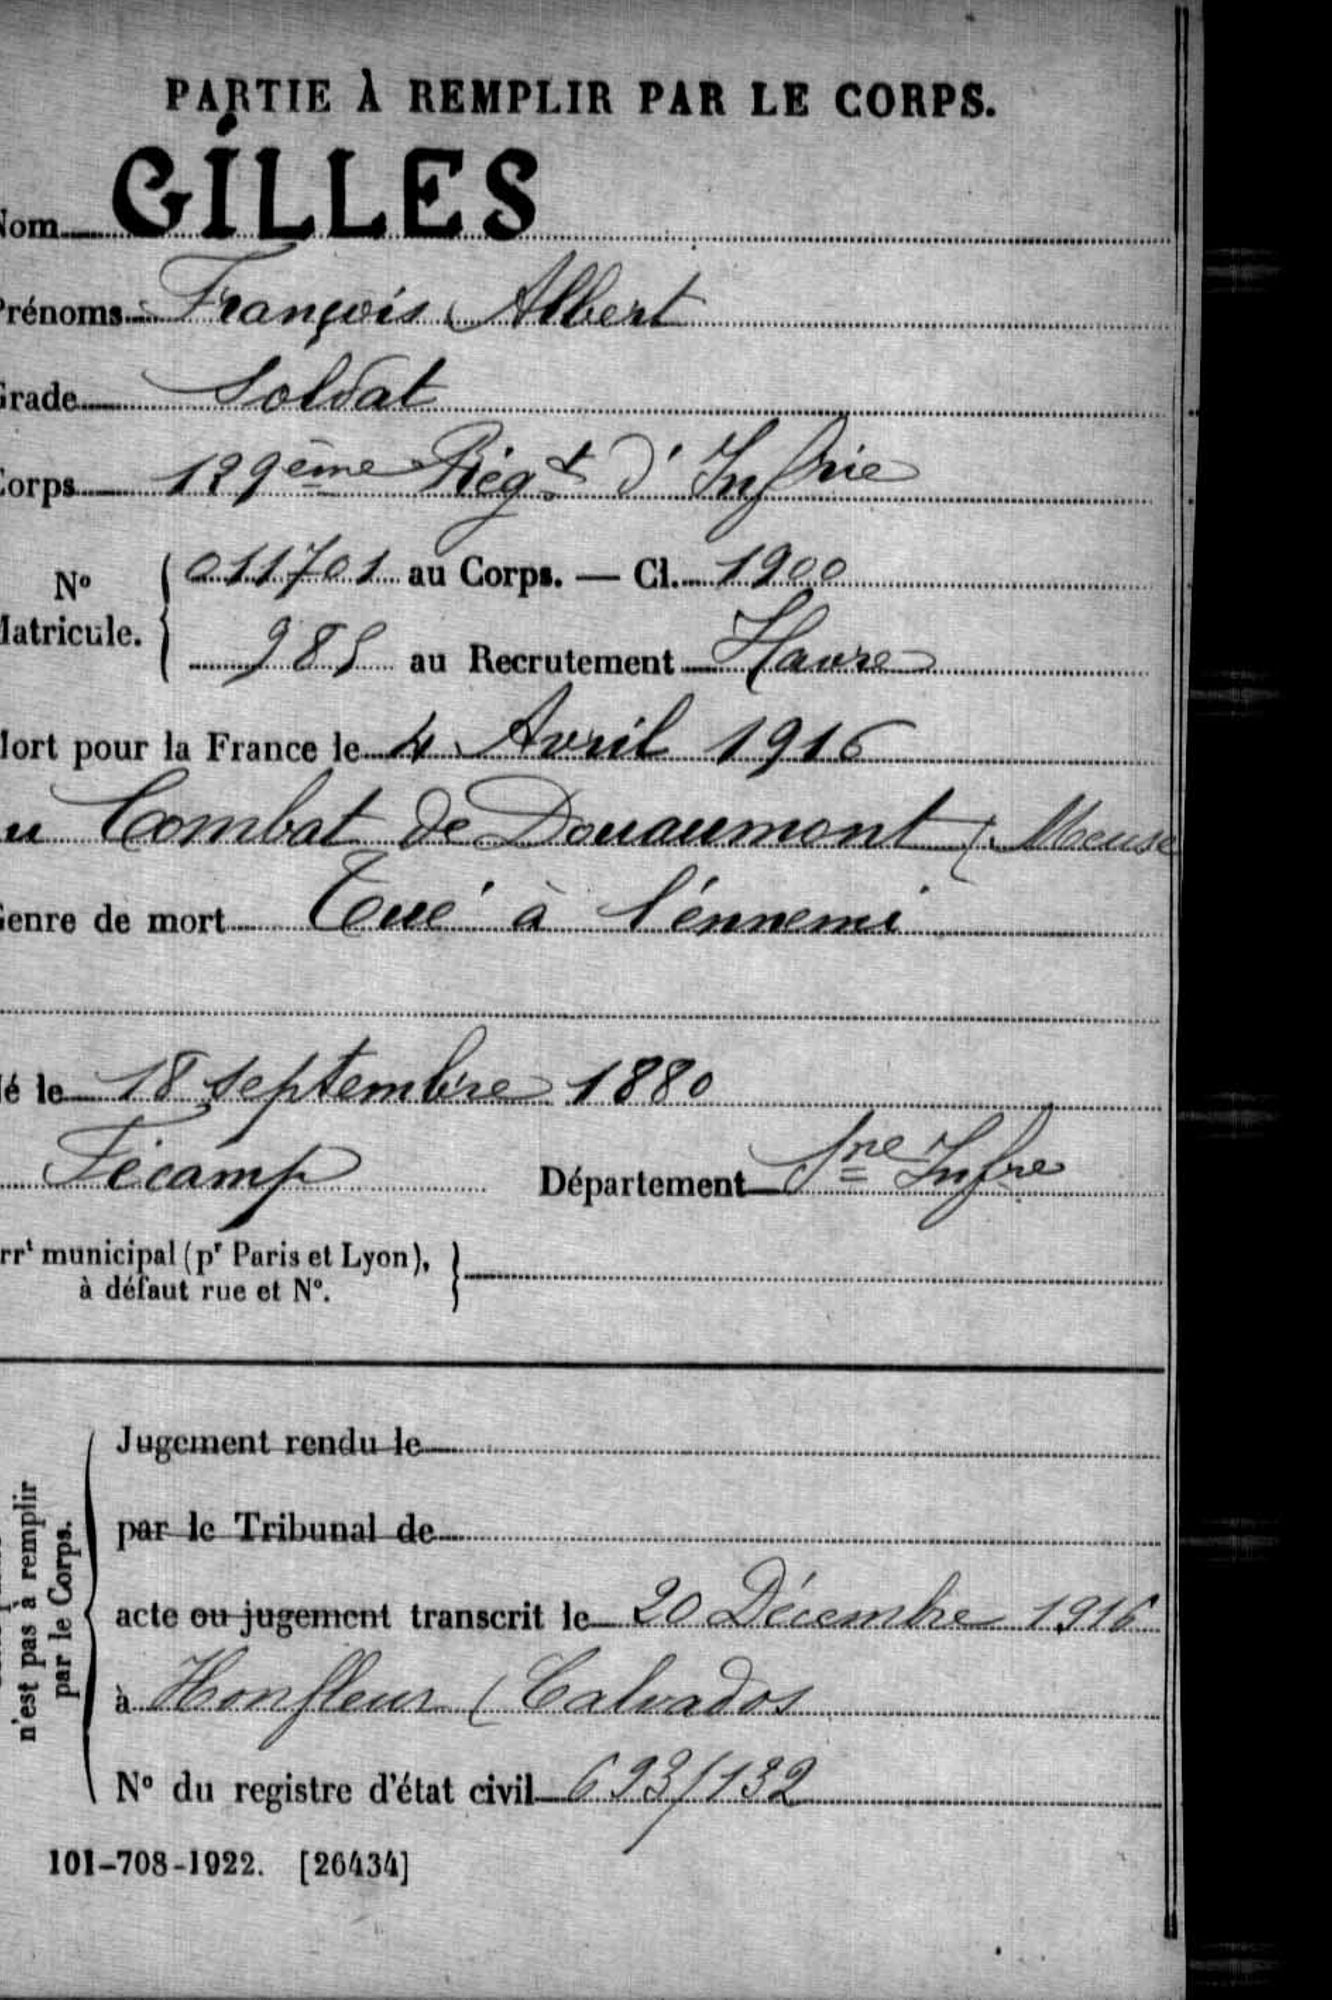 PARTIE À REMPLIR PAR LE CORPS.
Nom GILLES
Prénoms François Albert
Grade Soldat
Corps 129ème Régt d'Infrie
No Matricule. 011701 au Corps. — Cl. 1900
985 au Recrutement Havre
Mort pour la France le 4 Avril 1916
au Combat de Douaumont (Meuse
Genre de mort Tué à l'énnemi
Né le 18 septembre 1880
Fécamp Département Sne Infre
Arrt municipal (pr Paris et Lyon),
à défaut rue et No.
n'est pas à remplir
par le Corps.
Jugement rendu le
par le Tribunal de
acte ou jugement transcrit le 20 Décembre 1916
à Honfleur (Calvados
No du registre d'état civil 693/132
101-708-1922. [26434]